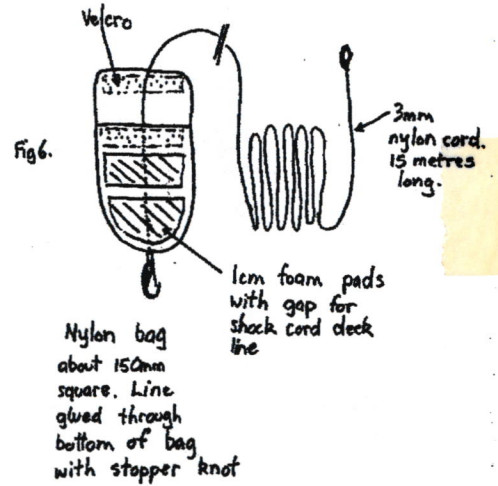 Velcro
Fig6.
3mm
nylon cord.
15 metres
long.
1cm foam pads
with gap for
shock cord deck
line
Nylon bag
about 150mm
square. Line
glued through
bottom of bag
with stopper knot